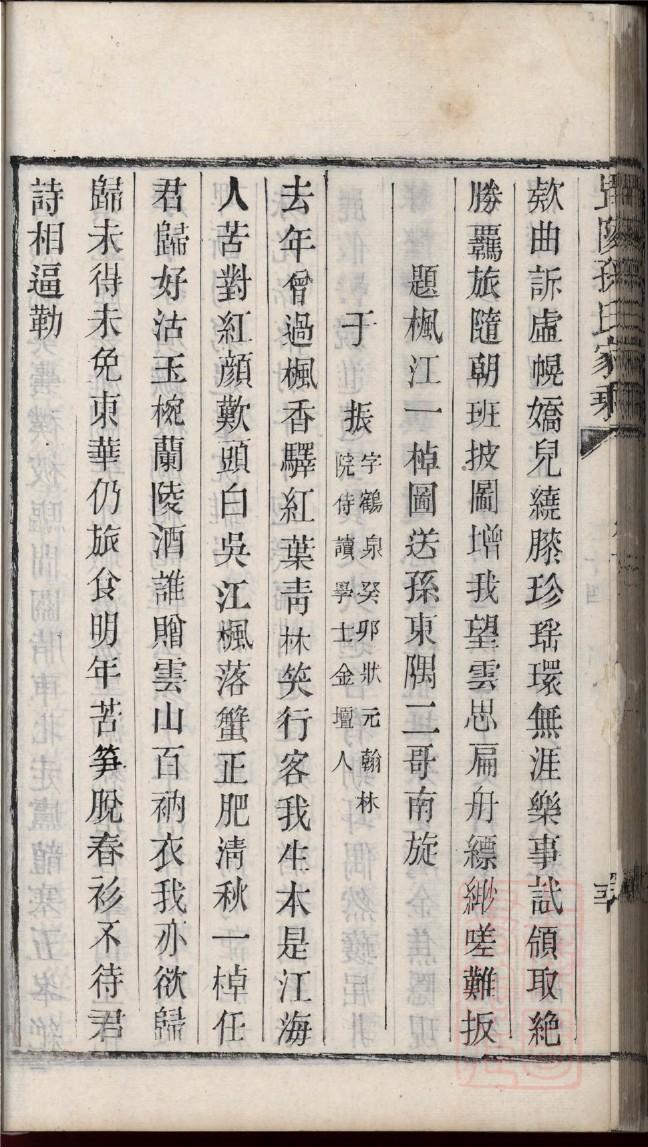 毘陵孫氏家乘
欵曲訴虛幌嬌兒繞膝珍瑶環無涯樂事試領取絶
勝覊旅隨朝班披圖增我望雲思扁舟縹緲嗟難扳
題楓江一棹圖送孫東隅二哥南旋
于振字鶴泉癸卯狀元翰林
院侍讀學士金壇人
去年曾過楓香驛紅葉靑林笑行客我生本是江海
人苦對紅顔歎頭白吳江楓落蟹正肥淸秋一棹任
君歸好沽玉椀蘭陵酒誰贈雲山百衲衣我亦欲歸
歸未得未免東華仍旅食明年苦笋脫春衫不待君
詩相逼勒